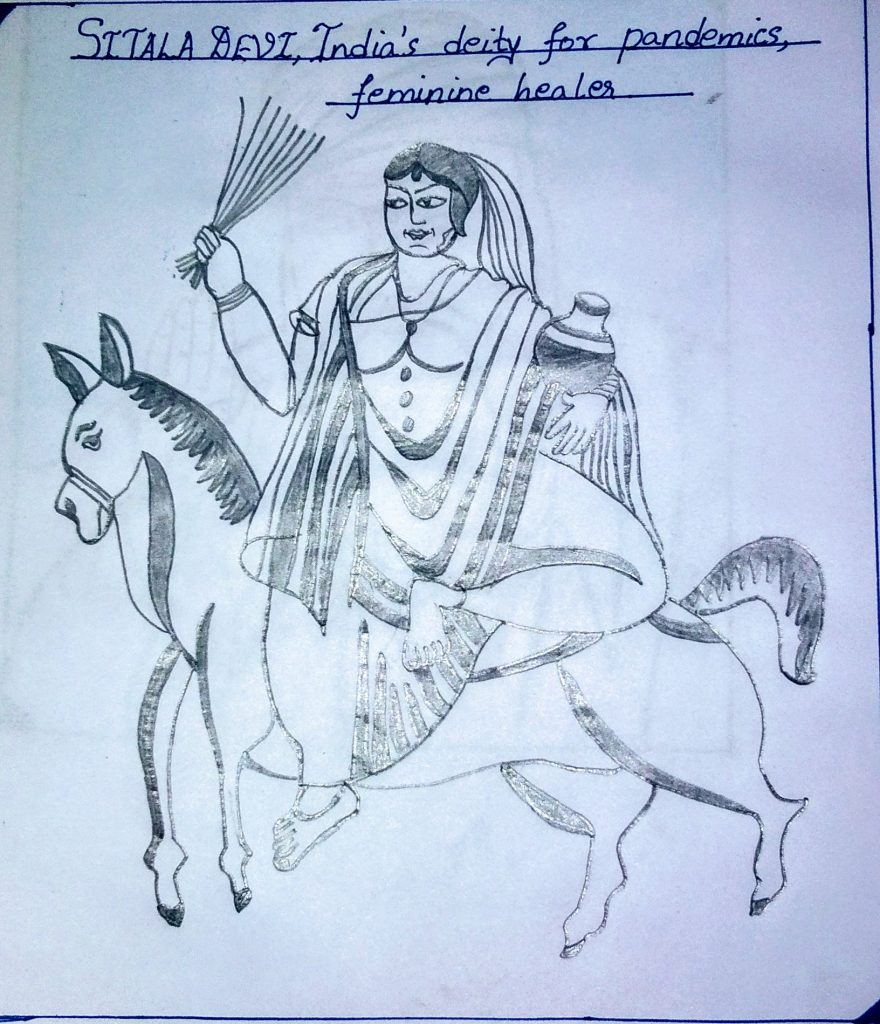 SITALA DEVI, India's deity for pandemics,
feminine healer